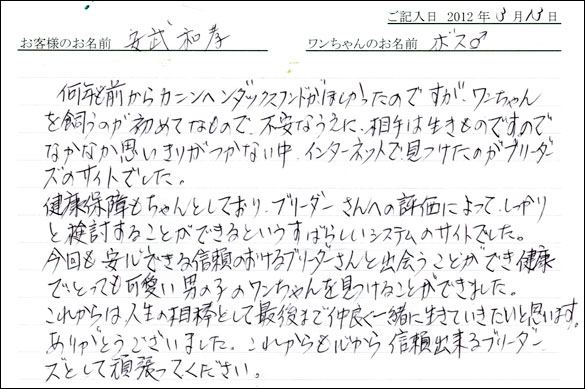 ご記入日 2012年3月13日
お客様のお名前 安武和孝 ワンちゃんのお名前 ボス♂
何年も前からカニンヘンダックスフンドがほしかったのですが、ワンちゃん
を飼うのが初めてなもので、不安なうえに、相手は生きものですので
なかなか思いきりがつかない中、インターネットで見つけたのがブリーダー
ズのサイトでした。
健康保障もちゃんとしており、ブリーダーさんへの評価によって、しっかり
と検討することができるというすばらしいシステムのサイトでした。
今回も安心できる信頼のおけるブリーダーさんと出会うことができ健康
でとっても可愛い男の子のワンちゃんを見つけることができました。
これからは人生の相棒として最後まで仲良く一緒に生きていきたいと思います。
ありがとうございました。これからも心から信頼出来るブリーダー
ズとして頑張ってください。